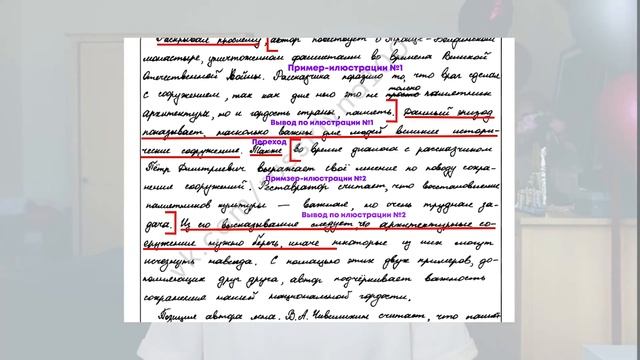 Раскрывая проблему, автор повествует о Троице-Болдинском
монастыре, уничтоженном фашистами во времена Великой
Пример-илюстрации №1
Отечественной войны. Рассказчика поразило то, что враг сделал
с сооружением, так как для него это не просто только памятник
архитектуры, но и гордость страны, память. Данный эпизод
Вывод по илюстрации №1
показывает, насколько важны для людей великие истори-
Переход
ческие сооружения. Также во время диалога с рассказчиком
Пётр Дмитриевич выражает своё мнение по поводу сохра-
Примзер-илюстрации №2
нения сооружений. Реставратор считает, что восстановление
памятников культуры — важная, но очень трудная за-
Вывод по илюстрации №2
дача. Из его высказывания следует, что архитектурные со-
оружения нужно беречь, иначе некоторые из них могут
исчезнуть навсегда. С помощью этих двух примеров, до-
полняющих друг друга, автор подчёркивает важность
сохранения нашей национальной гордости.
Позиция автора ясна. В.А. Чивилихин считает, что памят